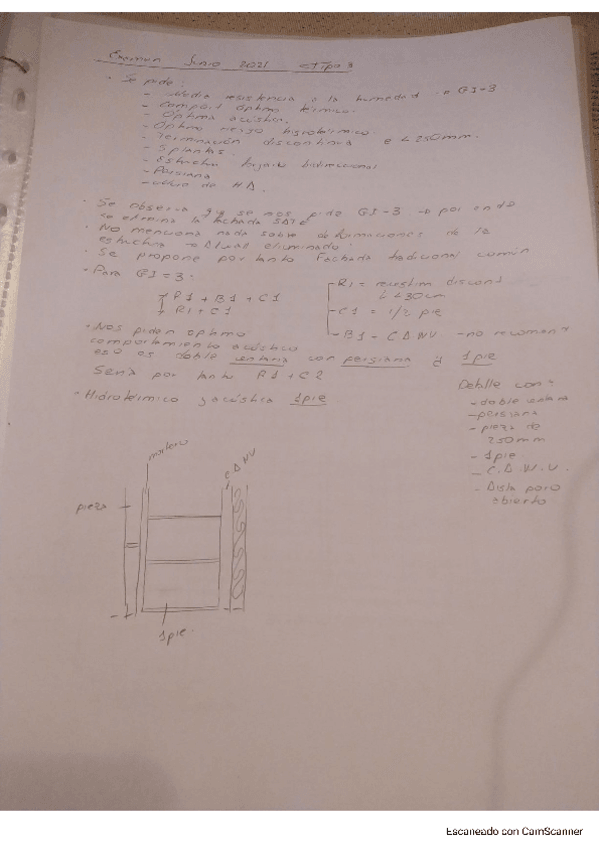 Examen Junio 2021 Tipo 3
· Se pide:
- Media resistencia a la humedad → GI=3
- Comport. óptimo térmico.
- Óptma acústica.
- Óptimo riesgo higrotérmico.
- Terminación discontinua e < 250mm.
- 5 plantas.
- Estructura forjado bidireccional
- Persiana
- de HA.
· Se observa que se nos pide GI-3 → por ende
se elimina la fachada SATE
· No menciona nada sobre deformaciones de la
estructura → eliminado.
· Se propone por tanto Fachada tradicional común
· Para GI=3:
R1 + B1 + C1
R1 + C1
R1 = revestim discont
L < 30cm
C1 = 1/2 pie
B1 = CANV → no
· Nos piden optimo
comportamiento acústico
eso es doble ventana con persiana y 1pie
Sería por tanto R1 + C2
· Hidrotérmico y acústica 1pie
Detalle con:
- doble ventana
- persiana
- pieza de
250mm
- 1pie
- C.A.N.V.
- Aisla poro
abierto
mortero
CANV
pieza
1pie.
Escaneado con CamScanner